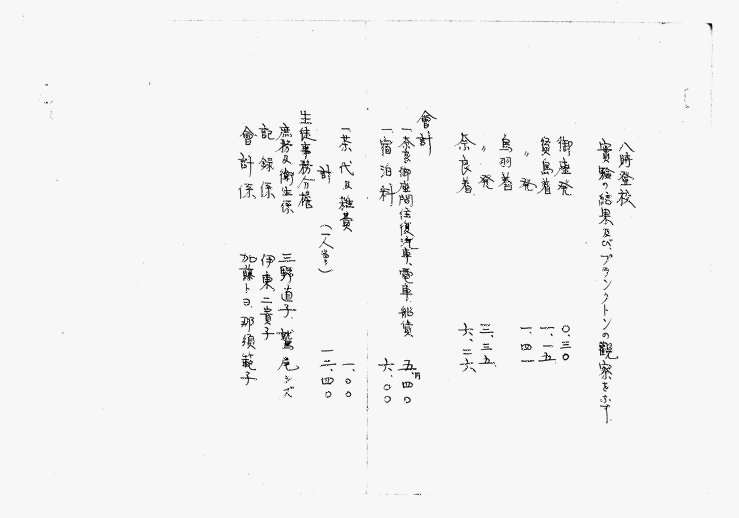 八時登校
實驗の結果及び、プランクトンの觀察をなす。
御座発 〇.三〇
賢島着 一.一五
〃 発 一.四一
鳥羽着
〃 発 三.三五
奈良着 六.二六
會計
一奈良御座間往復汽車、電車、船賃 五.四〇円
一宿泊料 六.〇〇
一茶代及雑費 一.〇〇
計(一人當) 一二.四〇
生徒事務分擔
庶務及衛生係 三野直子 鷲尾シズ
記録係 伊東二貴子
會計係 加藤トヨ、那須範子